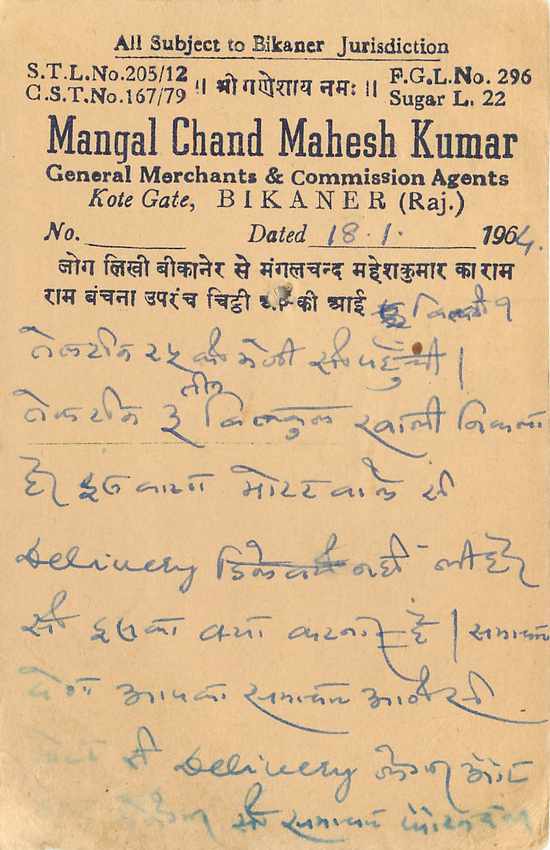 All Subject to Bikaner Jurisdiction
S.T.L.No.205/12
C.S.T.No.167/79
॥ श्री गणेशाय नमः ॥
F.G.L.No. 296
Sugar L. 22
Mangal Chand Mahesh Kumar
General Merchants & Commission Agents
Kote Gate, BIKANER (Raj.)
No. Dated 18.1. 1964.
जोग लिखी बीकानेर से मंगलचन्द महेशकुमार का राम
राम बंचना उपरंच चिट्ठी की आई
तेल टीन २५ की भेजी सो पहुँची।
तीन
तेल टीन ३ बिलकुल खाली निकला
है इस मोटर वाले से
Delivery नहीं ली है
सो इसका क्या करना है। समाचार
देना आपका समाचार आने से
Delivery
सो समाचार